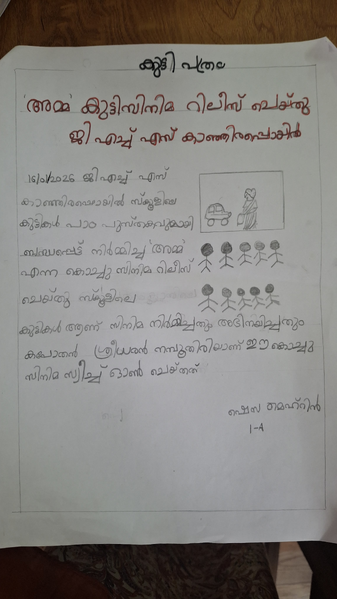 കുട്ടി പത്രം
'അമ്മ' കുട്ടിസിനിമ റിലീസ് ചെയ്തു
ജി എച്ച് എസ് കാഞ്ഞിരപ്പൊയിൽ
ജി എച്ച് എസ്
കാഞ്ഞിരപ്പൊയിൽ സ്കൂളിലെ
കുട്ടികൾ പാഠ പുസ്തകവുമായി
ബന്ധപ്പെട്ട് നിർമ്മിച്ച 'അമ്മ'
എന്ന കൊച്ചു സിനിമ റിലീസ്
ചെയ്തു സ്കൂട്ടിലെ
കുട്ടികൾ ആണ് സിനിമ നിർമ്മിച്ചതും അഭിനയിച്ചതും
ശ്രീധരൻ നമ്പൂതിരിയാണ് ഈ കൊച്ചു
സിനിമ സ്വിച്ച് ഓൺ ചെയ്തത്
ഷെസ മെഹ്റിൻ
1-A